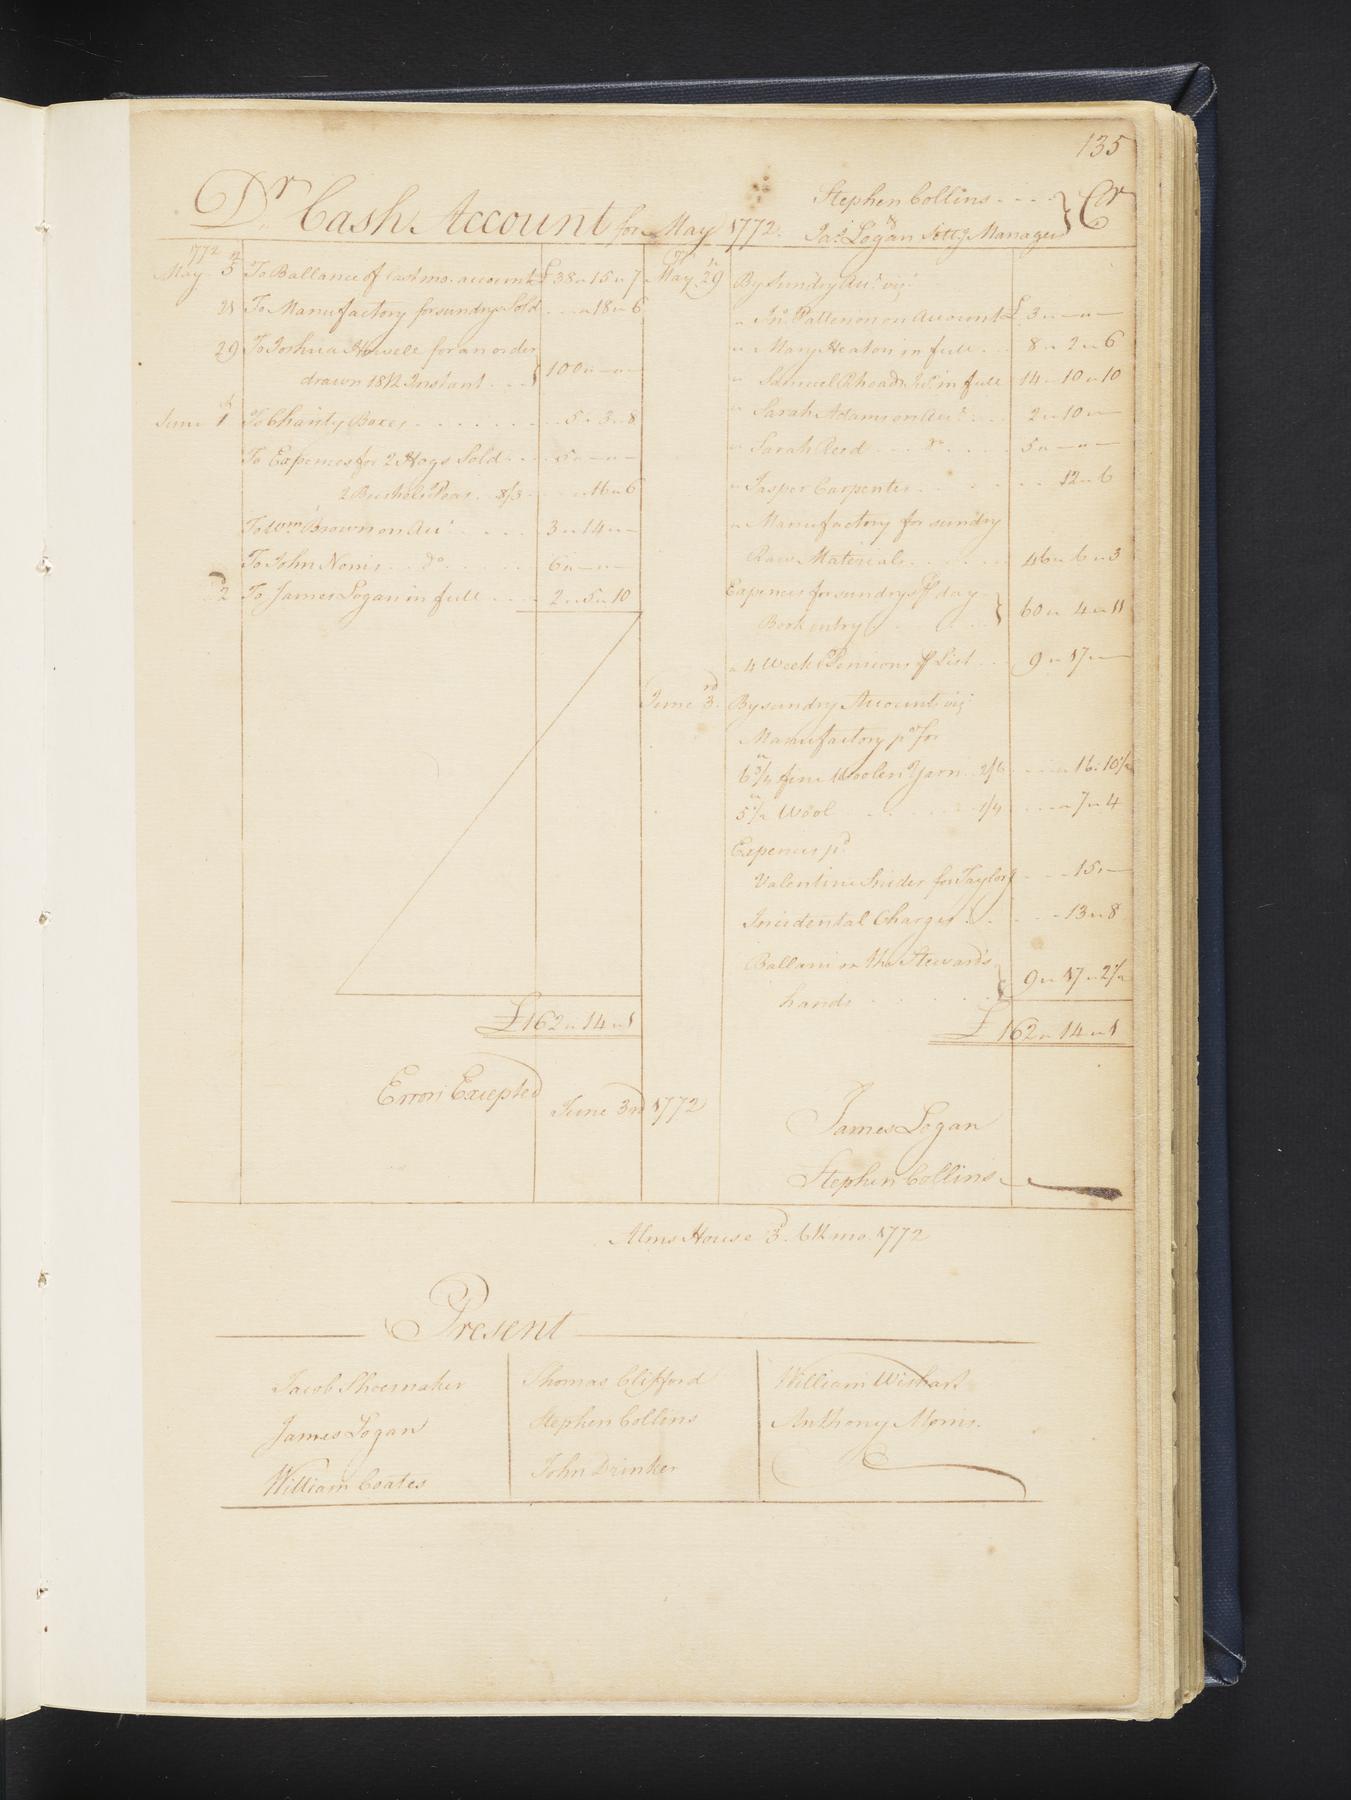 135
Dr Cash Account for May 1772. Stephen Collins & Jas. Logan Sittg Managers } Cr
1772
May 5th To Ballance of last mo. account £ 38 " 15 " 7
21 To Manufactory for sundrys Sold . . . " 18 " 6
29 To Joshua Howell for an order
drawn 18th Instant . . . } 100 " — " —
June 1st To Charity Boxes . . . . 5 " 3 " 8
To Expences for 2 Hogs Sold . . . 5 " — " —
2 Bushels Peas . . 8/3 . . . " 16 " 6
To Wm. Brown on Acct. . . . . 3 " 14 " —
To John Norris . . Do . . . . 6 " — " —
2d To James Logan in full . . . 2 " 5 " 10
£ 162 " 14 " 1
May 29th By Sundry Acct. viz.
" Jno. Patterson on Account £ 3 " — " —
" Mary Heaton in full . . 8 " 2 " 6
" Samuel Rhoads Jr. in full 14 " 10 " 10
" Sarah Adams on Acct. . . 2 " 10 " —
" Sarah Reed . . . Do . . . 5 " — " —
" Jasper Carpenter . . . . 12 " 6
" Manufactory for sundry
Raw Materials . . . . 46 " 6 " 3
Expences for sundrys ⅌ day
Book entry . . . . } 60 " 4 " 11
" 4 Weeks Pensions ⅌ List . . 9 " 17 " —
June 3rd. By sundry Accounts viz.
Manufactory pd. for
6 3/4 lb fine Woolen Yarn . 2/6 . . . " 16 : 10 1/2
5 1/2 lb Wool . . . . 1/4 . . . " 7 " 4
Expences pd.
Valentine Snider for Taylorg . . . 15 " —
Incidental Charges . . . . . 13 " 8
Ballance in the Stewards
hands . . . . . } 9 " 17 " 2 1/2
£ 162 " 14 " 1
Errors Excepted June 3rd 1772
James Logan
Stephen Collins
Alms House 3d. 6th mo. 1772
Present
Jacob Shoemaker Thomas Clifford William Wishart
James Logan Stephen Collins Anthony Morris.
William Coates John Drinker